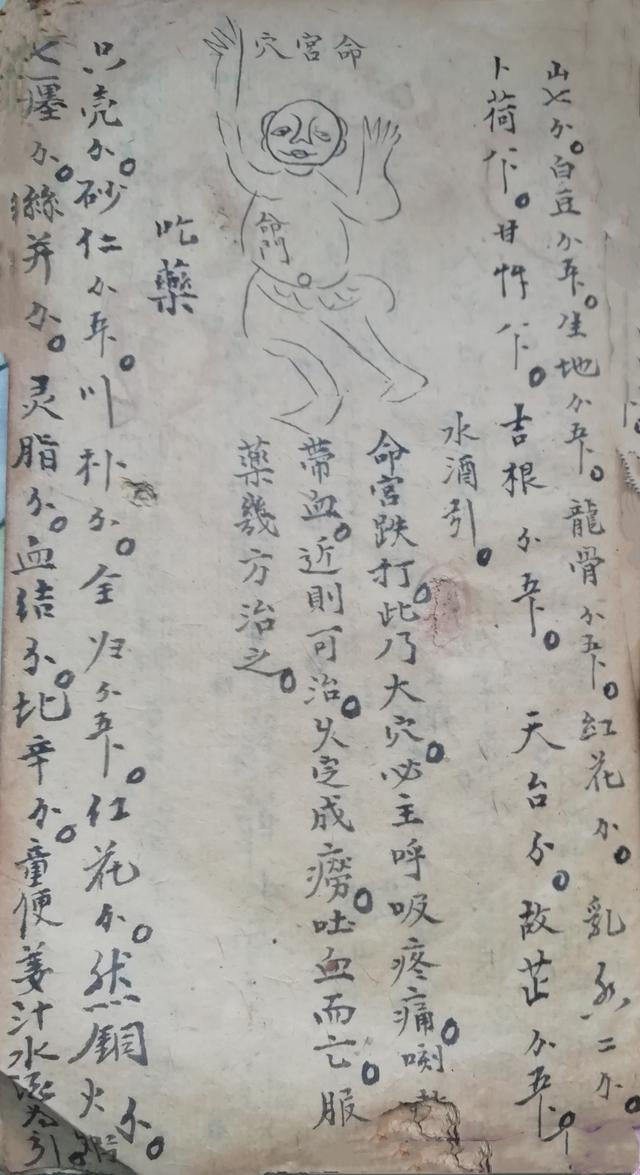 山七分。白豆分五下。生地分五下。龍骨分五下。紅花分。乳 二分。
卜荷 。甘 。吉根分五下。天台分。故芷分五下。
水酒引。
命宮跌打。此乃大穴。必主呼吸疼痛。唎
帶血。近則可治。久定成癆。吐血而亡。服
藥幾方治之。
命宮穴
命門
吃藥
只壳分。砂仁分五下。川朴分。全归分五下。红花分。然銅火 分。
七厘分。絲 分。灵脂分。血結分。北辛分。童便姜汁水酒為引。